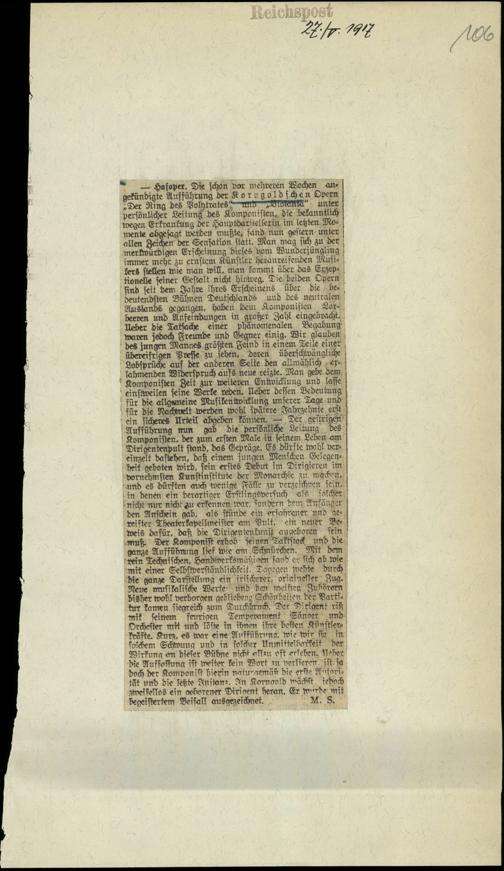 Reichspost
27./V. 1917
106
— Hofoper. Die schon vor mehreren Wochen an-
gekündigte Aufführung der Korngoldschen Opern
„Der Ring des Polykrates“ und „Violanta“ unter
persönlicher Leitung des Komponisten, die bekanntlich
wegen Erkrankung der Hauptdarstellerin im letzten Mo-
mente abgesagt werden mußte, fand nun gestern unter
allen Zeichen der Sensation statt. Man mag sich zu der
merkwürdigen Erscheinung dieses vom Wunderjüngling
immer mehr zu ernstem Künstler heranreifenden Musi-
kers stellen wie man will, man kommt über das Exzep-
tionelle seiner Gestalt nicht hinweg. Die beiden Opern
sind seit dem Jahre ihres Erscheinens über die be-
deutendsten Bühnen Deutschlands und des neutralen
Auslands gegangen, haben dem Komponisten Lor-
beeren und Anfeindungen in großer Zahl eingebracht.
Ueber die Tatsache einer phänomenalen Begabung
waren jedoch Freunde und Gegner einig. Wir glauben
des jungen Mannes größten Feind in einem Teile einer
übereifrigen Presse zu sehen, deren überschwängliche
Lobsprüche auf der anderen Seite den allmählich er-
lahmenden Widerspruch aufs neue reizte. Man gebe dem
Komponisten Zeit zur weiteren Entwicklung und lasse
einstweilen seine Werke reden. Ueber dessen Bedeutung
für die allgemeine Musikentwicklung unserer Tage und
für die Nachwelt werden wohl spätere Jahrzehnte erst
ein sicheres Urteil abgeben können. — Der gestrigen
Aufführung nun gab die persönliche Leitung des
Komponisten, der zum ersten Male in seinem Leben am
Dirigentenpult stand, das Gepräge. Es dürfte wohl ver-
einzelt dastehen, daß einem jungen Menschen Gelegen-
heit geboten wird, sein erstes Debut im Dirigieren im
vornehmsten Kunstinstitute der Monarchie zu machen,
und es dürften auch wenige Fälle zu verzeichnen sein,
in denen ein derartiger Erstlingsversuch als solcher
nicht nur nicht zu erkennen war, sondern dem Anfänger
den Anschein gab, als stünde ein erfahrener und ge-
reifter Theaterkapellmeister am Pult, ein neuer Be-
weis dafür, daß die Dirigentenkunst angeboren sein
muß. Der Komponist erhob seinen Taktstock und die
ganze Aufführung lief wie am Schnürchen. Mit dem
rein Technischen, Handwerksmäßigen fand er sich ab wie
mit einer Selbstverständlichkeit. Dagegen wehte durch
die ganze Darstellung ein frischerer, origineller Zug.
Neue musikalische Werte und den meisten Zuhörern
bisher wohl verborgen gebliebene Schönheiten der Parti-
tur kamen siegreich zum Durchbruch. Der Dirigent riß
mit seinem feurigen Temperament Sänger und
Orchester mit und löste in ihnen ihre besten Künstler-
kräfte. Kurz, es war eine Aufführung, wie wir sie in
solchem Schwung und in solcher Unmittelbarkeit der
Wirkung an dieser Bühne nicht allzu oft erleben. Ueber
die Auffassung ist weiter kein Wort zu verlieren, ist ja
doch der Komponist hierin naturgemäß die erste Autori-
tät und die letzte Instanz. In Korngold wächst jedoch
zweifellos ein geborener Dirigent heran. Er wurde mit
begeistertem Beifall ausgezeichnet. M. S.